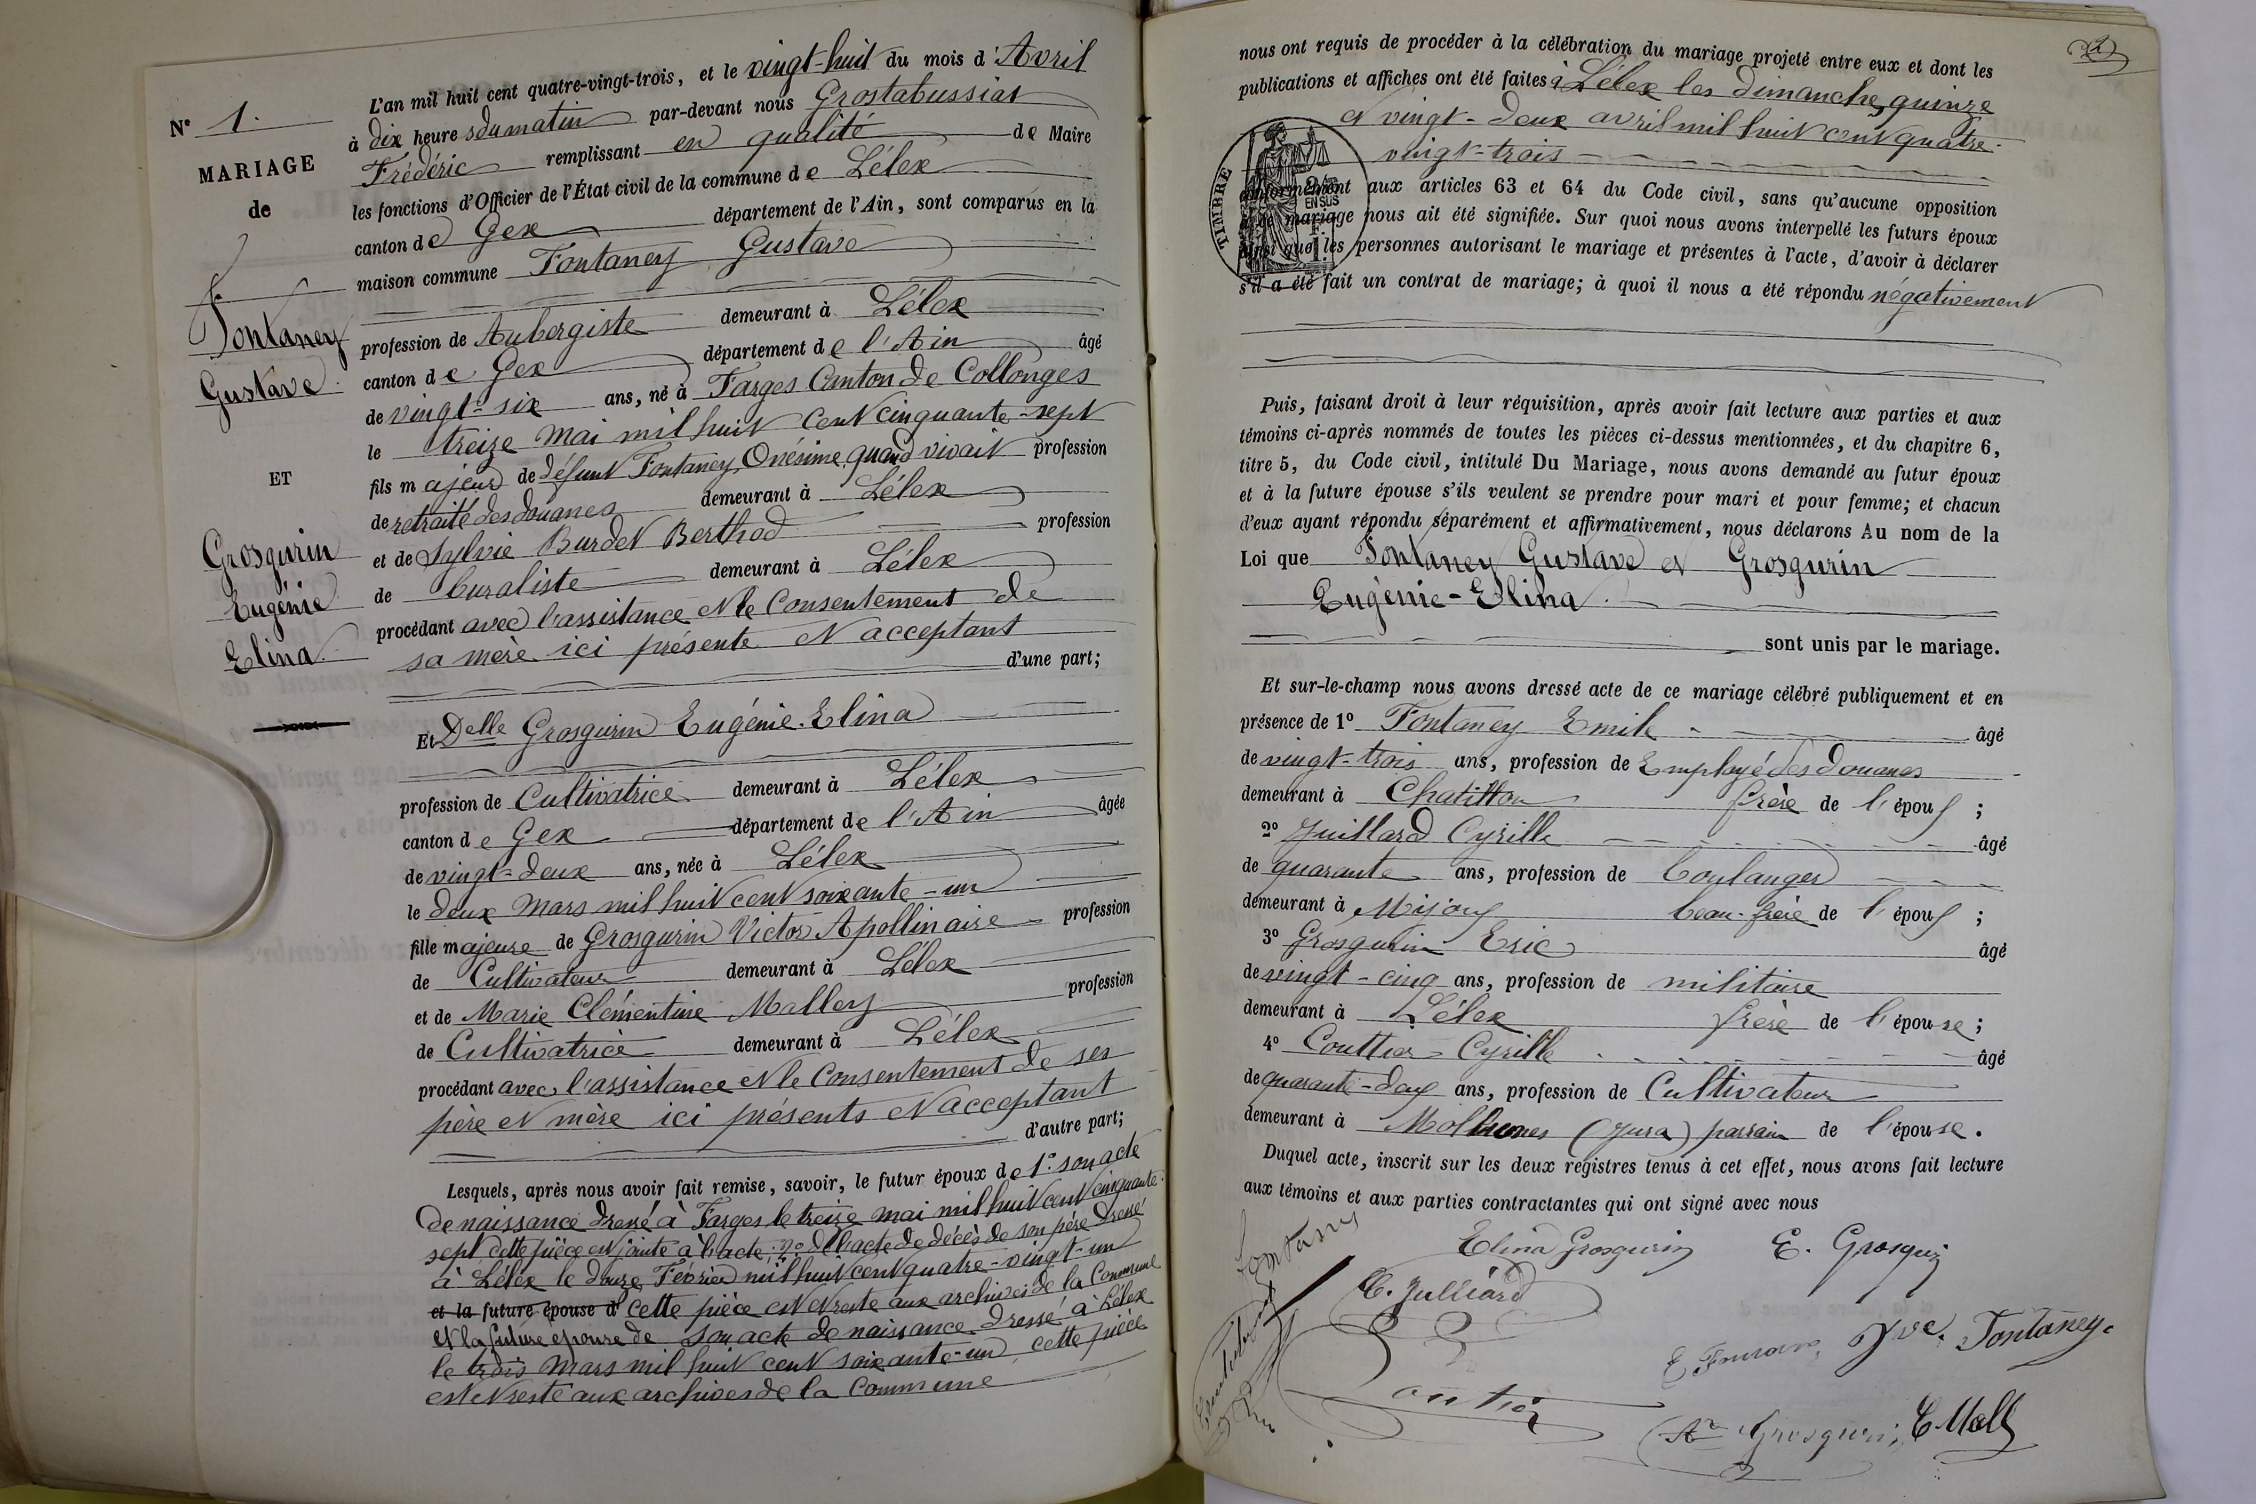 N° 1.
MARIAGE
de
Fontaney
Gustave
ET
Grosgurin
Eugénie
Elina
L'an mil huit cent quatre-vingt-trois, et le vingt-huit du mois d'Avril
à dix heures du matin par-devant nous Grostabussiat
Frédéric remplissant en qualité de Maire
les fonctions d'Officier de l'État civil de la commune de Lélex
canton de Gex département de l'Ain, sont comparus en la
maison commune Fontaney Gustave
profession de Aubergiste demeurant à Lélex
canton de Gex département de l'Ain âgé
de vingt-six ans, né à Farges Canton de Collonges
le treize mai mil huit cent cinquante-sept
fils majeur de défunt Fontaney Onésime quand vivait profession
de retraité des douanes demeurant à Lélex
et de Sylvie Burdet Berthod profession
de buraliste demeurant à Lélex
procédant avec l'assistance et le Consentement de
sa mère ici présente et acceptant
d'une part;
Et Delle Grosgurin Eugénie-Elina
profession de Cultivatrice demeurant à Lélex
canton de Gex département de l'Ain âgée
de vingt-deux ans, née à Lélex
le deux mars mil huit cent soixante-un
fille majeure de Grosgurin Victor Apollinaire profession
de Cultivateur demeurant à Lélex
et de Marie Clémentine Mallery profession
de Cultivatrice demeurant à Lélex
procédant avec l'assistance et le Consentement de ses
père et mère ici présents et acceptant
d'autre part;
Lesquels, après nous avoir fait remise, savoir, le futur époux de 1° son acte
de naissance dressé à Farges le treize mai mil huit cent cinquante-
sept cette pièce est jointe à l'acte; 2° de l'acte de décès de son père dressé
à Lélex le douze Février mil huit cent quatre-vingt-un
et la future épouse d cette pièce est et reste aux archives de la Commune
et la future épouse de son acte de naissance dressé à Lélex
le trois mars mil huit cent soixante-un, cette pièce
est et reste aux archives de la Commune
nous ont requis de procéder à la célébration du mariage projeté entre eux et dont les
publications et affiches ont été faites à Lélex les dimanches quinze
et vingt-deux avril mil huit cent quatre-
vingt-trois
TIMBRE
2/10 EN SUS
conformément aux articles 63 et 64 du Code civil, sans qu'aucune opposition
à ce mariage nous ait été signifiée. Sur quoi nous avons interpellé les futurs époux
ainsi que les personnes autorisant le mariage et présentes à l'acte, d'avoir à déclarer
s'il a été fait un contrat de mariage; à quoi il nous a été répondu négativement
Puis, faisant droit à leur réquisition, après avoir fait lecture aux parties et aux
témoins ci-après nommés de toutes les pièces ci-dessus mentionnées, et du chapitre 6,
titre 5, du Code civil, intitulé Du Mariage, nous avons demandé au futur époux
et à la future épouse s'ils veulent se prendre pour mari et pour femme; et chacun
d'eux ayant répondu séparément et affirmativement, nous déclarons Au nom de la
Loi que Fontaney Gustave et Grosgurin
Eugénie-Elina.
sont unis par le mariage.
Et sur-le-champ nous avons dressé acte de ce mariage célébré publiquement et en
présence de 1° Fontaney Emile âgé
de vingt-trois ans, profession de Employé des douanes
demeurant à Chatillon frère de l'époux;
2° Juillard Cyrille âgé
de quarante ans, profession de boulanger
demeurant à Mijoux beau-frère de l'époux;
3° Grosgurin Eric âgé
de vingt-cinq ans, profession de militaire
demeurant à Lélex frère de l'épouse;
4° Couttier Cyrille âgé
de quarante-deux ans, profession de Cultivateur
demeurant à Molunes (Jura) parrain de l'épouse.
Duquel acte, inscrit sur les deux registres tenus à cet effet, nous avons fait lecture
aux témoins et aux parties contractantes qui ont signé avec nous
Fontaney
Elina Grosgurin E. Grosgurin
C. Julliard
Vve. Fontaney
Coutier
Ar Grosgurin